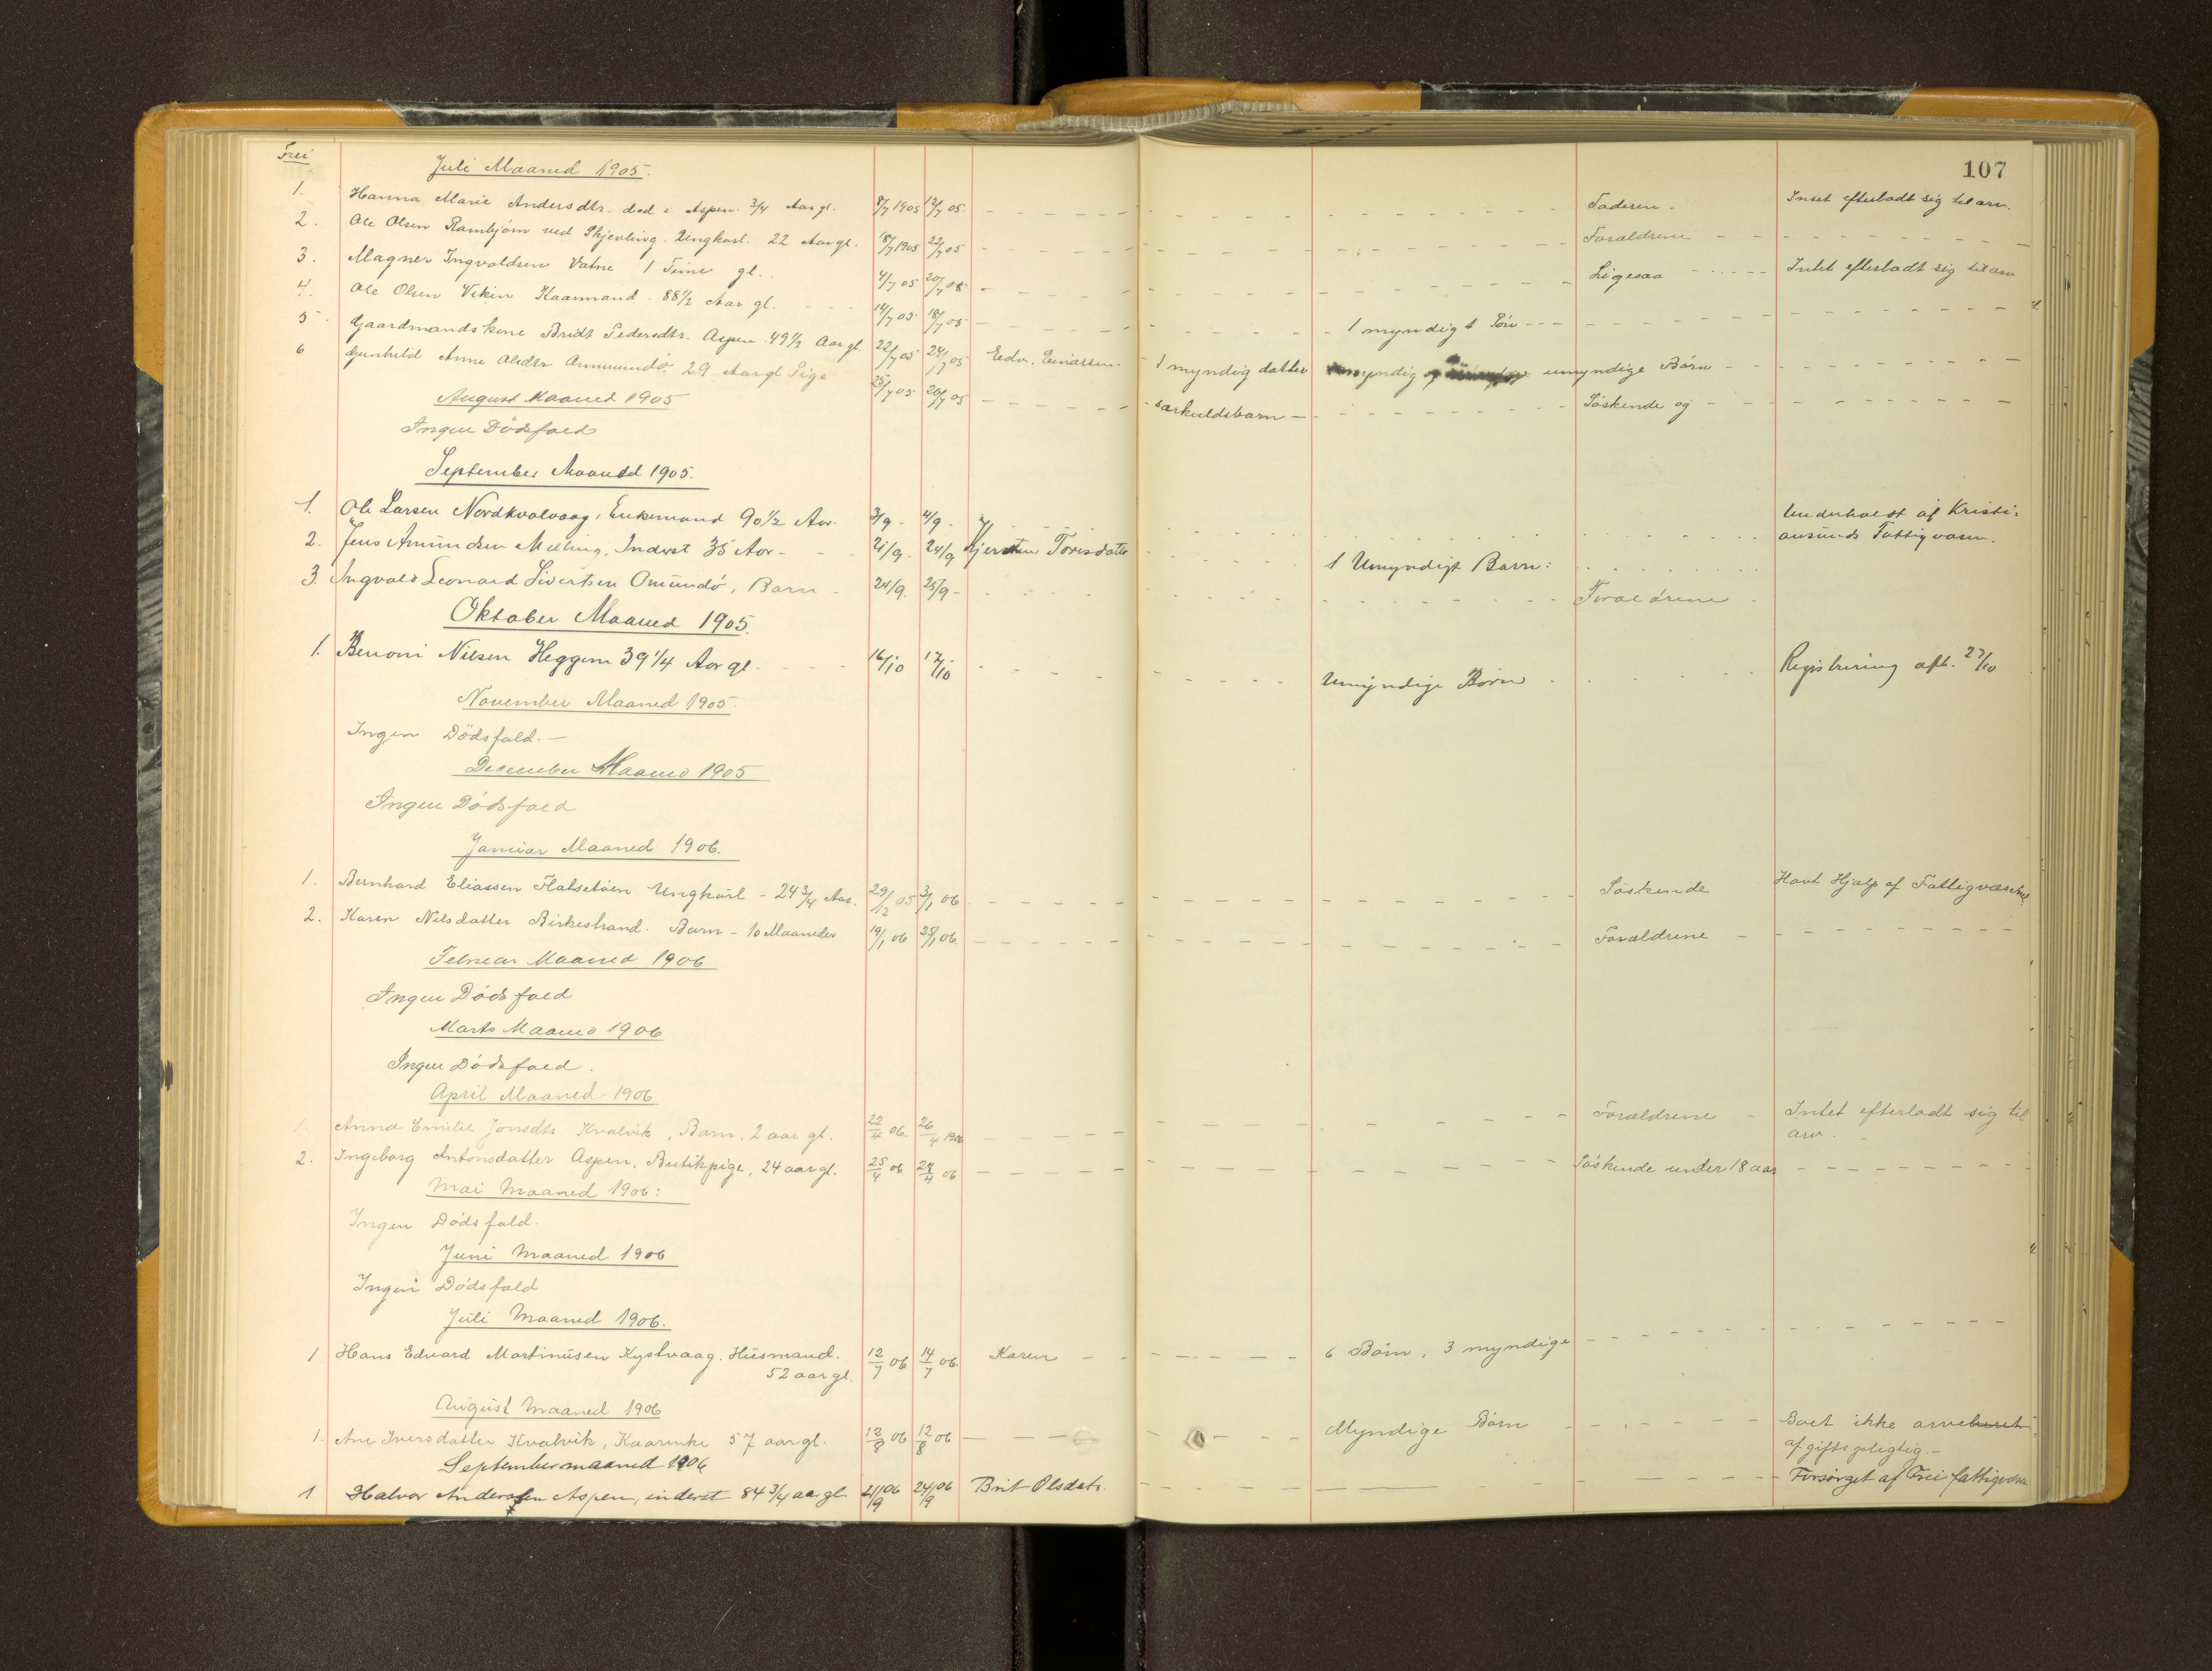 Frei
107
Juli Maaned 1905.
1. Hanna Marie Andersdtr. död i Aspen. 3/4 Aar gl. 8/7 1905 12/7 05 Faderen. Intet efterladt sig til arv.
2. Ole Olsen Rambjøm ved Skjevling. Ungkarl. 22 Aar gl. 18/7 1905 22/7 05 Forældrene
3. Magner Ingvaldsen Vatne 1 Time gl. 4/7 05 20/7 05 Ligesaa Intet efterladt sig til arv
4. Ole Olsen Vikin Kaarmand. 88 1/2 Aar gl. 14/7 05 18/7 05 1 myndig Sön
5. Gaardmandskone Bridt Pedersdtr. Aspen 49 1/3 Aar gl. 22/7 05 24/7 05 Edv. Einarsen. 1 myndig datter umyndige Börn
6 Gunhild Anne Olsdtr Ommundö 29 Aar gl Pige 25/7 05 20/7 05 særkuldsbarn Söskende og
August Maaned 1905
Ingen Dödsfald
September Maaned 1905.
1. Ole Larsen Nordkvalvaag, Enkemand 90 1/2 Aar. 3/9 - 4/9 - Underholdt af Kristi=
ansunds Fattigvæsen.
2. Jens Amundsen Melling, Inderst 35 Aar - 21/9. 24/9 Kjersten Toresdatter 1 Umyndigt Barn:
3. Ingvald Leonard Sivertsen Omundö, Barn 24/9. 25/9 - Forældrene
Oktober Maaned 1905.
1. Benoni Nilsen Heggem 39 1/4 Aar gl. 16/10 17/10 Umyndige Börn Registrering afh. 27/10
November Maaned 1905.
Ingen Dödsfald. —
December Maaned 1905
Ingen Dödsfald
Januar Maaned 1906.
1. Bernhard Eliassen Flatsetöien Ungkarl - 24 3/4 Aar. 29/12 05 3/1 06 Söskende Havt Hjælp af Fattigvæsenet
2. Karen Nilsdatter Birkestrand. Barn - 10 Maaneder 19/1 06 25/1 06. Forældrene
Februar Maaned 1906
Ingen Dödsfald
Marts Maaned 1906
Ingen Dödsfald.
April Maaned 1906
1. Anna Emilie Jonsdtr. Kvalvik, Barn, 2 aar gl. 22/4 06. 26/4 1906 Forældrene Intet efterladt sig til
arv.
2. Ingeborg Antonsdatter Aspen, Butikpige, 24 aar gl. 25/4 06 28/4 06 Söskende under 18 aar
Mai Maaned 1906:
Ingen Dödsfald.
Juni Maaned 1906
Ingen Dödsfald
Juli Maaned 1906.
1 Hans Edvard Martinusen Kystvaag. Husmand. 12/7 06 14/7 06. Karen 6 Börn, 3 myndige
52 aar gl.
August Maaned 1906
1. Ane Iversdatter Kvalvik, Kaarenke 57 aar gl. 12/8 06 12/8 06 Myndige Börn Boet ikke arve
afgiftspligtig. -
September maaned 1906
1 Halvor Andersen Aspen, inderst 84 3/4 aa gl. 21/9 06 24/9 06 Brit Olsdatr. Forsörget af Frei fattigvæsen